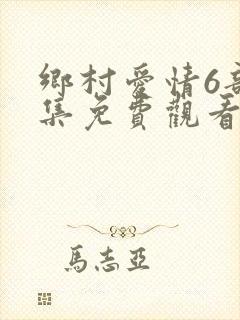 鄉村愛情6
集免費觀看
馬志亞